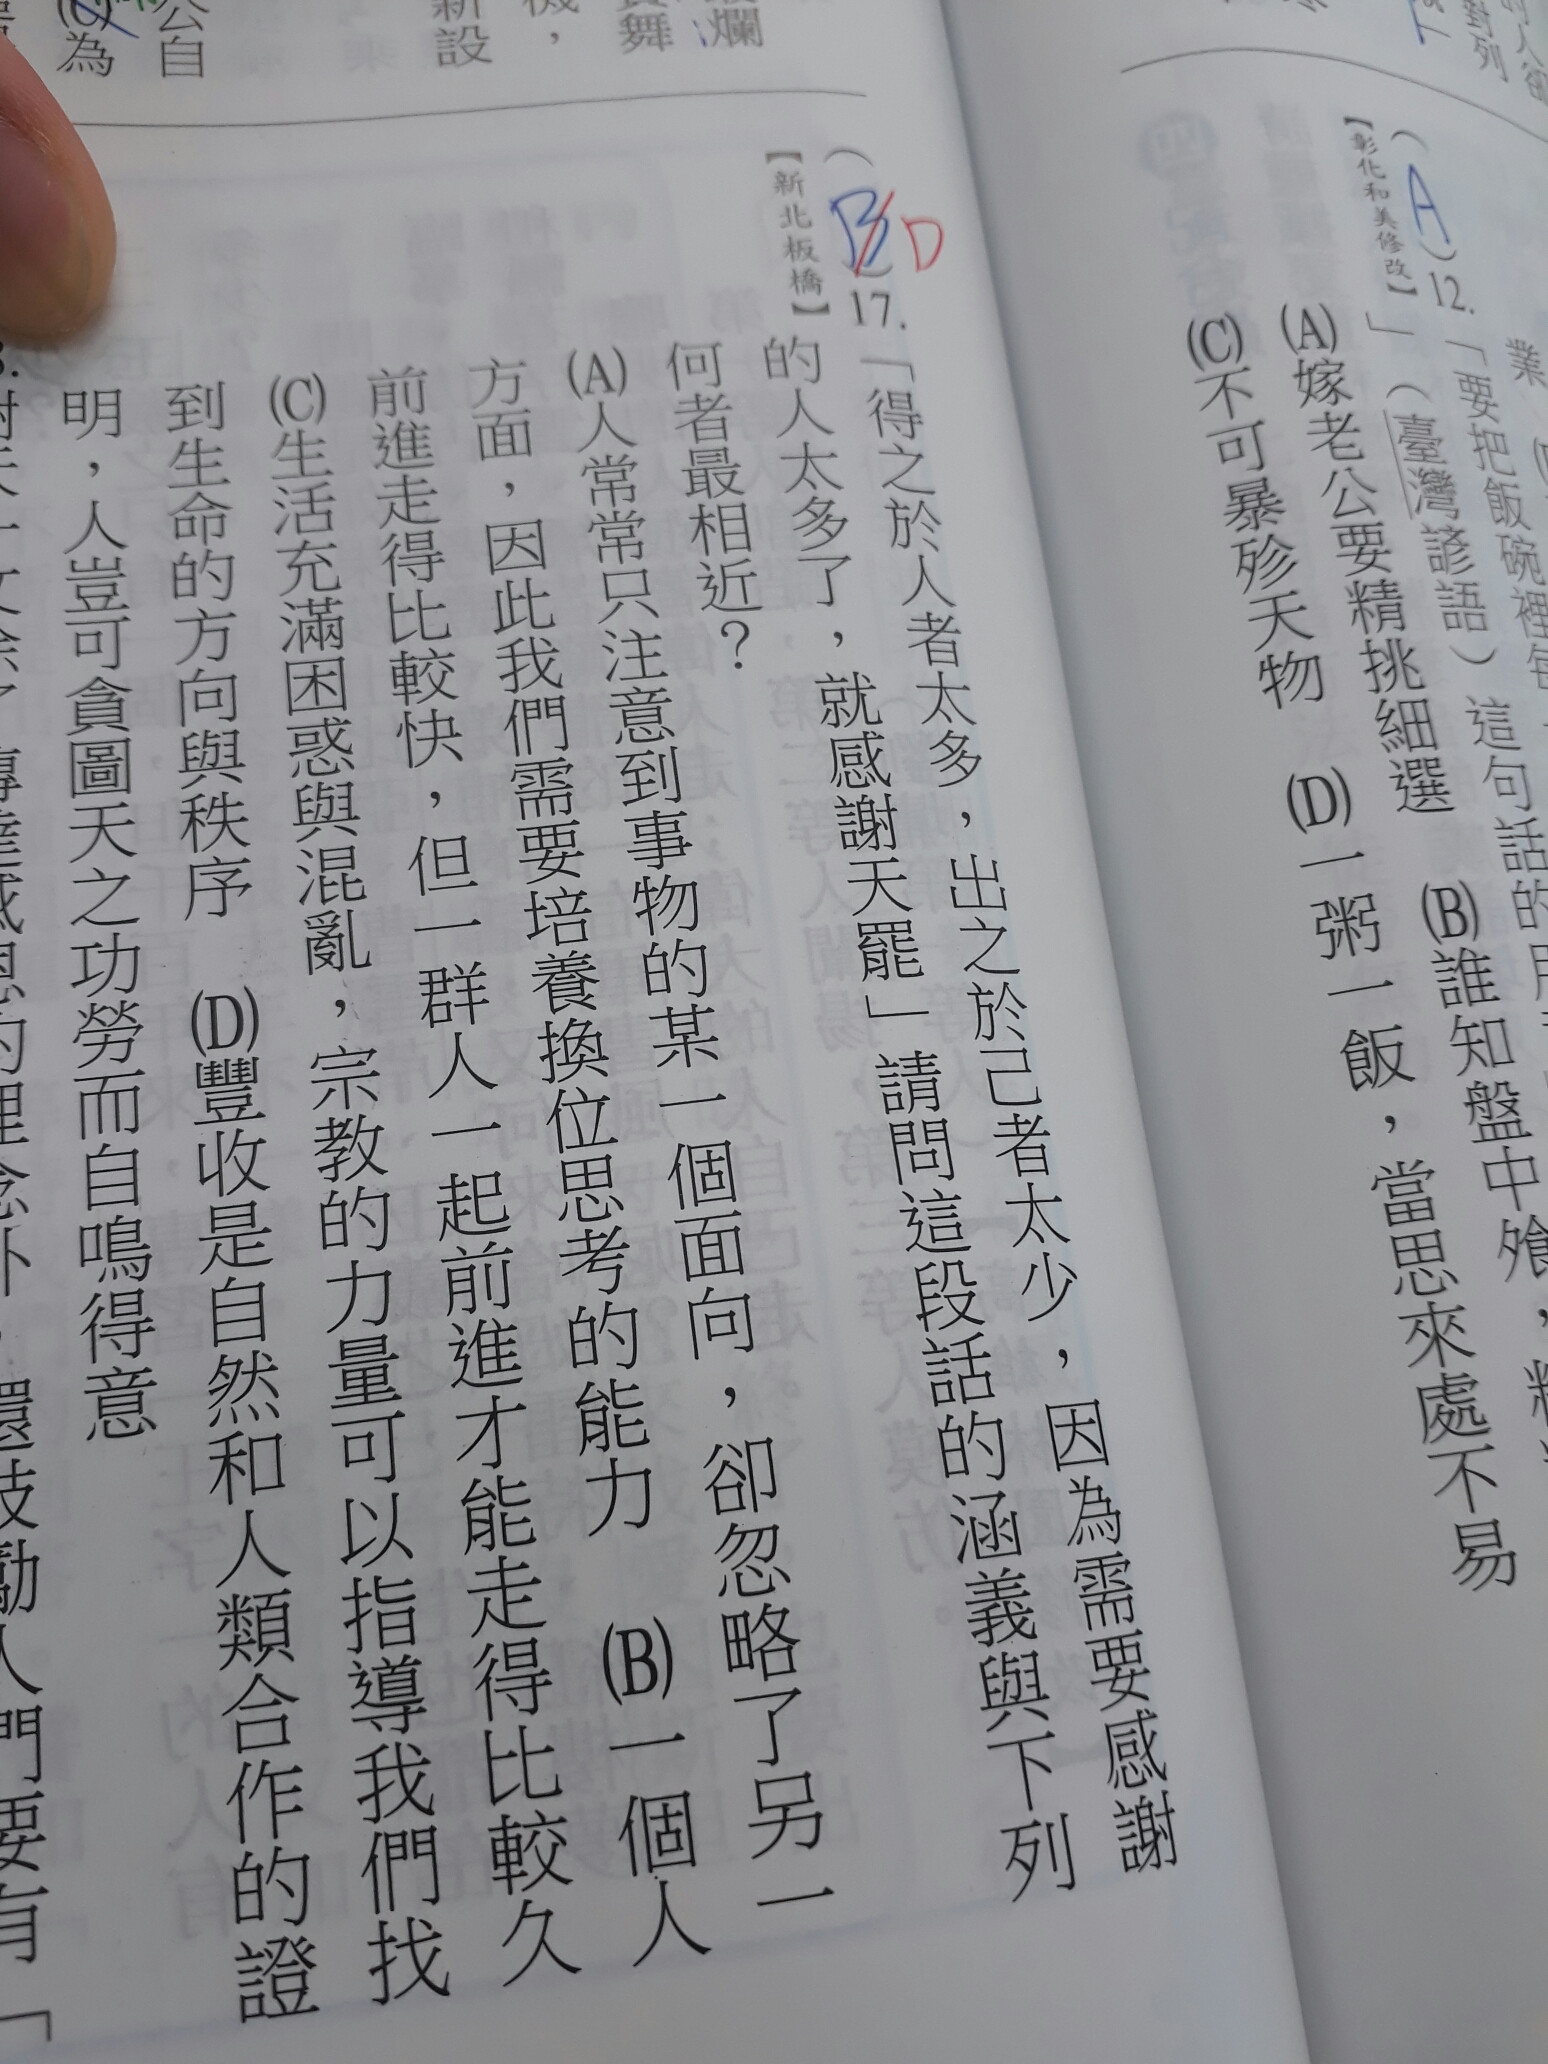 爛
舞
機，
新設
公自
(C)為
對列
(A)12.「要把飯碗裡每
」(臺灣諺語)這句話的用
【彰化和美修改】
(A)嫁老公要精挑細選 (B)誰知盤中飧，粒
(C)不可暴殄天物 (D)一粥一飯，當思來處不易
(B D)17.「得之於人者太多，出之於己者太少，因為需要感謝
【新北板橋】
的人太多了，就感謝天罷」請問這段話的涵義與下列
何者最相近？
(A)人常常只注意到事物的某一個面向，卻忽略了另一
方面，因此我們需要培養換位思考的能力 (B)一個人
前進走得比較快，但一群人一起前進才能走得比較久
(C)生活充滿困惑與混亂，宗教的力量可以指導我們找
到生命的方向與秩序 (D)豐收是自然和人類合作的證
明，人豈可貪圖天之功勞而自鳴得意
還鼓勵人們要有「